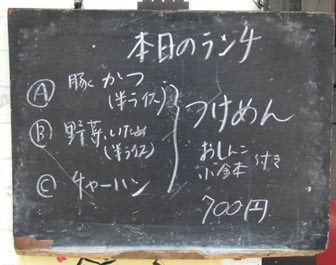 本日のランチ
Ⓐ 豚かつ
(半ライス)
Ⓑ 野菜いため
(半ライス)
Ⓒ チャーハン
つけめん
おしんこ
小鉢 付き
700円